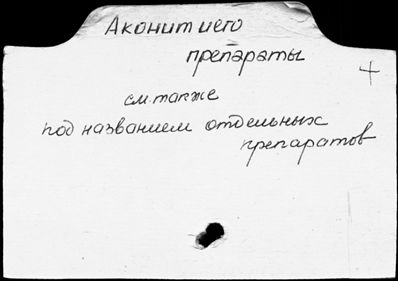 Аконит и его
препараты
см. также
под названием отдельных
препаратов